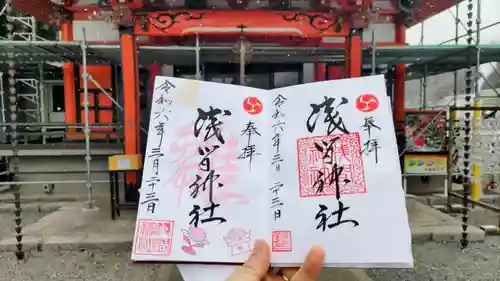 奉拝
浅間神社
令和六年三月二十三日
奉拝
浅間神社
令和六年三月二十三日